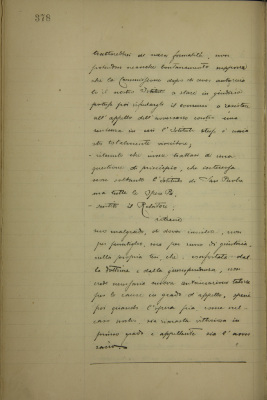 378
trattandosi di mera formalità, non
potendosi neanche lontanamente supporre
che la Commissione dopo di aver autorizzato
lo il nostro Istituto a stare in giudizio
potesse poi rifiutargli il consenso a resistere
all'appello dell'avversario contro una
sentenza in cui l'Istituto stesso è uscito
totalmente vincitore;
- ritenuto che non trattasi di una
questione di principio, che interessa
non soltanto l'Istituto di San Paolo
ma tutte le Opere Pie;
- sentito il Relatore;
ritiene
suo malgrado, di dover insistere, non
per puntiglio, ma per senso di giustizia,
nella propria tesi che, confortata dal
la dottrina e dalla giurisprudenza, non
crede necessaria nuova autorizzazione tutoria
per le cause in grado d'appello, specie
poi quando l'opera pia, come nel
caso nostro, sia rimasta vittoriosa in
primo grado e appellante sia l'avver
sario.